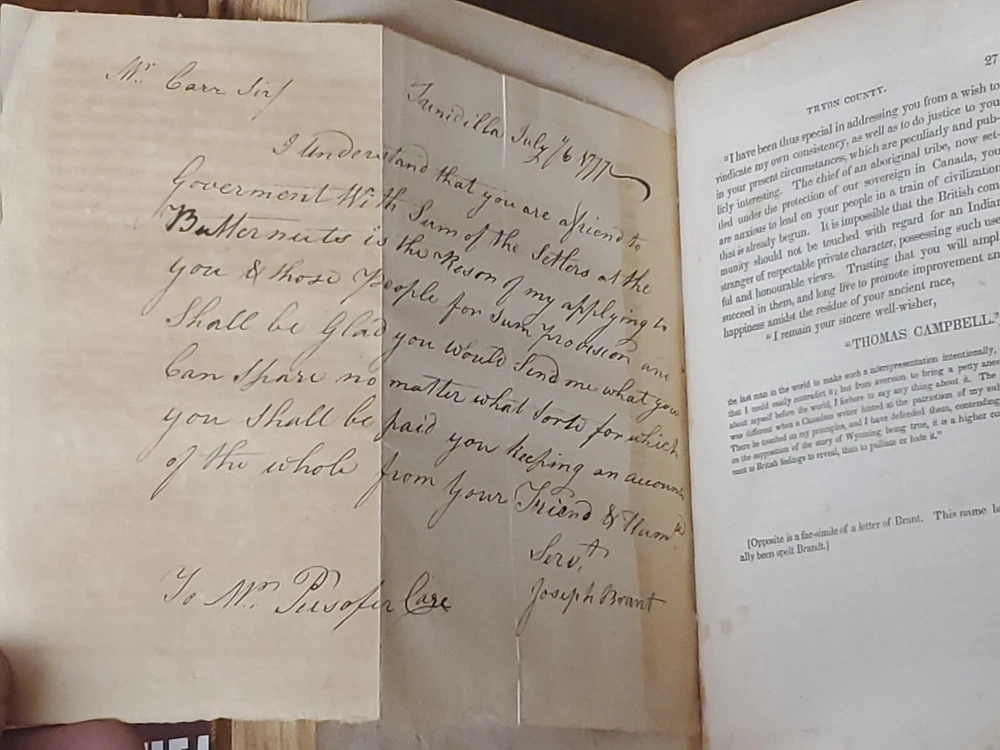 Mr. Carr Sir/
Tunidilla July 6 1777
I Understand that you are a friend to
Goverment With Sum of the Setlers at the
Butternuts is the Reson of my applying to
you & those People for Sum Provision and
Shall be Glad you would Send me what you
Can Spare no matter what Sorts for which
you Shall be paid you keeping an account
of the whole from your Friend & Humle
Servt
Joseph Brant
To Mr. Persafer Carr
TRYON COUNTY.
27
"I have been thus special in addressing you from a wish to
vindicate my own consistency, as well as to do justice to you
in your present circumstances, which are peculiarly and pub-
licly interesting. The chief of an aboriginal tribe, now set-
tled under the protection of our sovereign in Canada, you
are anxious to lead on your people in a train of civilization
that is already begun. It is impossible that the British com-
munity should not be touched with regard for an Indian
stranger of respectable private character, possessing such use-
ful and honourable views. Trusting that you will ampl
succeed in them, and long live to promote improvement an
happiness amidst the residue of your ancient race,
"I remain your sincere well-wisher,
"THOMAS CAMPBELL."
the last man in the world to make such a misrepresentation intentionally,
that I could easily contradict it; but from aversion to bring a petty anec
about myself before the world, I forbore to say any thing about it. The
was different when a Canadian writer hinted at the patriotism of my
There he touched on my principles, and I have defended them, contending
on the supposition of the story of Wyoming being true, it is a higher co
ment to British feelings to reveal, than to palliate or hide it."
[Opposite is a fac-simile of a letter of Brant. This name
ally been spelt Brandt.]